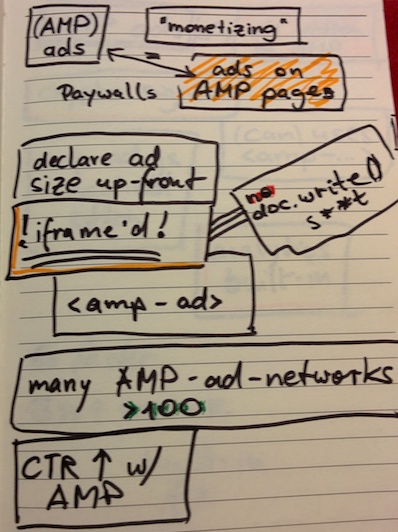 (AMP)
ads
"monetizing"
=
ads on
AMP pages
Paywalls
declare ad
size up-front
! iframe'd!
no
doc.write()
s**t
<amp-ad>
many AMP-ad-networks
>100
CTR ↑ w/
AMP